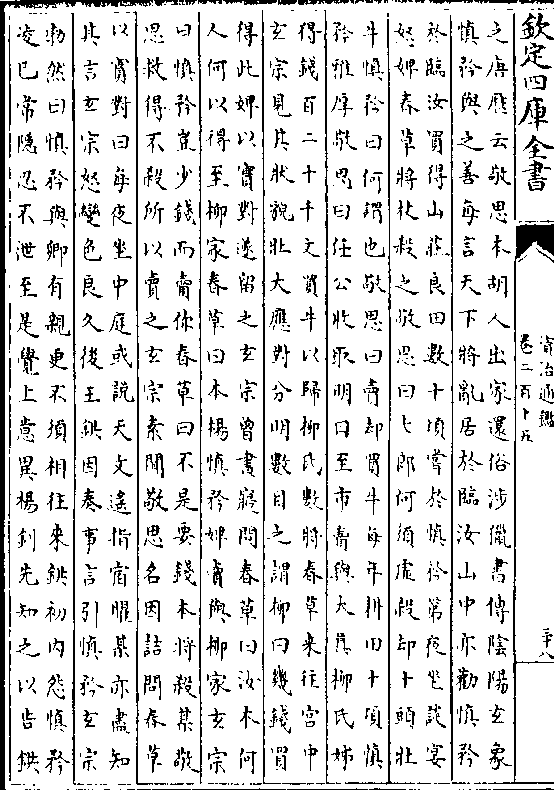 欽定四庫全書
資治通鑑
卷二百十五
三十八
之唐厯云敬思本胡人出家還俗涉獵書傳陰陽玄象
慎矜與之善每言天下將亂居於臨汝山中亦勸慎矜
於臨汝買得山莊良田數十頃嘗於慎矜第夜坐談宴
怒婢春草將杖殺之敬思曰七郎何須虛殺却十頭壯
牛慎矜曰何謂也敬思曰賣却買牛每年耕田十頃慎
矜雅厚敬思曰任公收取明日至市賣與大真柳氏姊
得錢百二十千文買牛以歸柳氏數將春草来往宫中
玄宗見其狀貌壯大應對分明數目之謂柳曰幾錢買
得此婢以實對遂留之玄宗曾晝寢問春草曰汝本何
人何以得至柳家春草曰本楊慎矜婢賣與柳家玄宗
曰慎矜豈少錢而賣你春草曰不是要錢本將殺某敬
思救得不殺所以賣之玄宗素聞敬思名因詰問春草
以實對曰每夜坐中庭或說天文遙指宿曜某亦盡知
其言玄宗怒變色良久後王鉷因奏事言引慎矜玄宗
勃然曰慎矜與卿有親更不須相往来鉷初内怨慎矜
凌已常隱忍不泄至是覺上意異楊釗先知之以告鉷